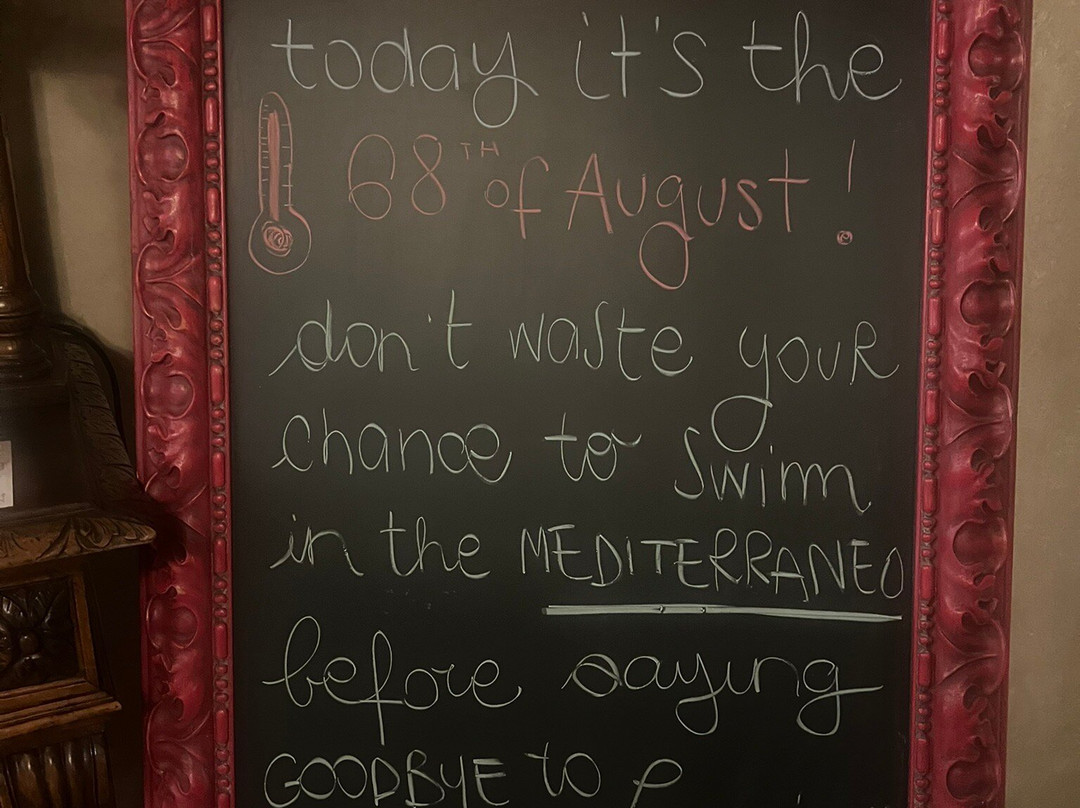 today it's the
68TH of August!
don't waste your
chance to swim
in the MEDITERRANEO
before saying
GOODBYE to